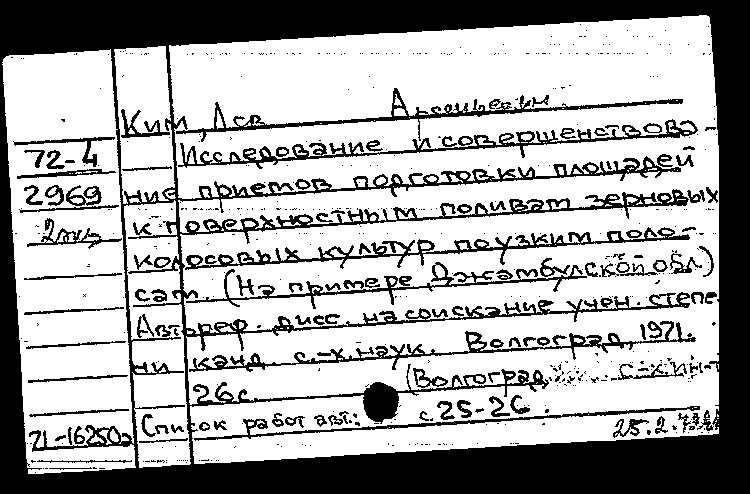 Ким, Лев Арсеньевич.
72-4 Исследование и совершенствова-
2969 ние приемов подготовки площадей
2 экз к поверхностным поливам зерновых
колосовых культур по узким поло-
сам. (На примере Джамбулской обл.)
Автореф. дисс. на соискание учен. степе-
ни канд. с.-х. наук. Волгоград, 1971.
26с. (Волгоград с-х. ин-т
71-16250а Список работ авт.: с.25-26.
25.2.